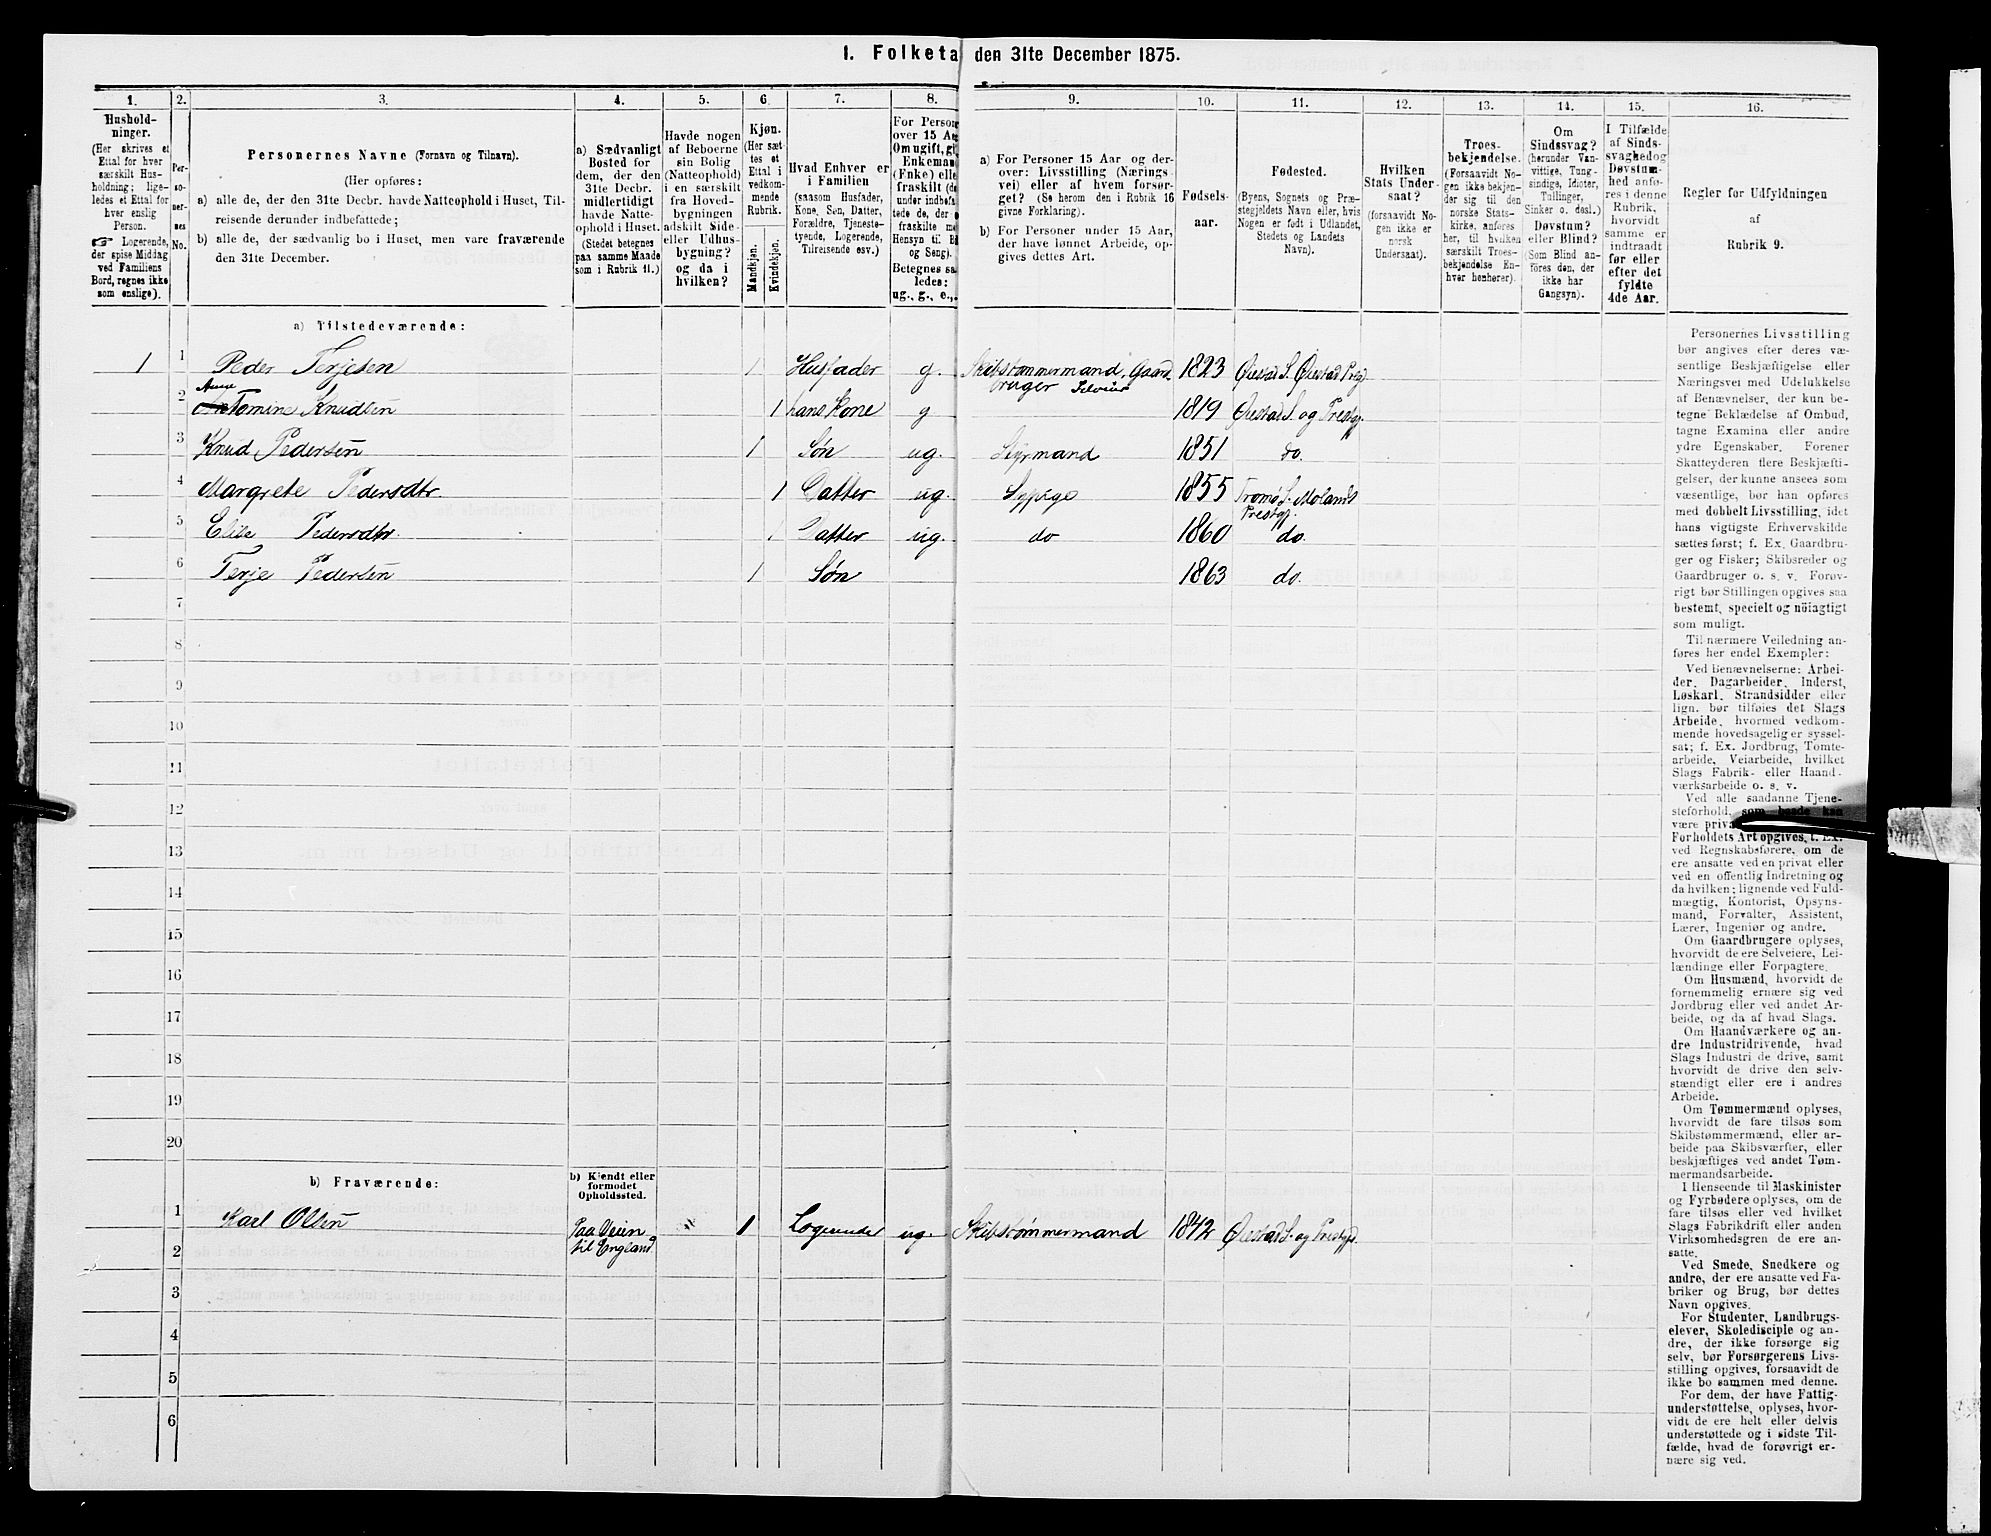 1. Folketa den 31te December 1875.
1. 2. 3. 4. 5. 6. 7. 8. 9. 10. 11. 12. 13. 14. 15. 16.
Hushold-
ninger.
(Her skrives et
Ettal for hver
særskilt Hus-
holdning; lige-
ledes et Ettal for
hver enslig
Person.
☞ Logerende,
der spise Middag
ved Familiens
Bord, regnes ikke
som enslige).
Per-
so-
ner-
nes
No.
Personernes Navne (Fornavn og Tilnavn).
(Her opføres:
a) alle de, der den 31te Decbr. havde Natteophold i Huset, Til-
reisende derunder indbefattede;
b) alle de, der sædvanlig bo i Huset, men vare fraværende
den 31te December.
a) Sædvanligt
Bosted for
dem, der den
31te Decbr.
midlertidigt
havde Natte-
ophold i Huset.
(Stedet betegnes
paa samme Maade
som i Rubrik 11.)
Havde nogen
af Beboerne
sin Bolig
(Natteophold)
i en særskilt
fra Hoved-
bygningen
adskilt Side-
eller Udhus-
bygning?
og da i
hvilken?
Kjøn.
(Her sæt-
tes et
Ettal i
vedkom-
mende
Rubrik.
Mandkjøn.
Kvindekjøn.
Hvad Enhver er
i Familien
(saasom Husfader,
Kone, Søn, Datter,
Forældre, Tjeneste-
tyende, Logerende,
Tilreisende osv.)
For Person
over 15 Aa
Om ugift, gi
Enkeman
(Enke) elle
fraskilt (d
under indbefa
tede de, der
fraskilte me
Hensyn til B
og Seng).
Betegnes sa
ledes:
ug., g., e.,
a) For Personer 15 Aar og der-
over: Livsstilling (Nærings-
vei) eller af hvem forsør-
get? (Se herom den i Rubrik 16
givne Forklaring).
b) For Personer under 15 Aar,
der have lønnet Arbeide, op-
gives dettes Art.
Fødsels-
aar.
Fødested.
(Byens, Sognets og Præ-
stegjeldets Navn eller, hvis
Nogen er født i Udlandet,
Stedets og Landets
Navn).
Hvilken
Stats Under-
saat?
(forsaavidt No-
gen ikke er
norsk
Undersaat).
Troes-
bekjendelse.
(Forsaavidt No-
gen ikke bekjen-
der sig til den
norske Stats-
kirke, anføres
her, til hvilken
særskilt Troes-
bekjendelse En-
hver henhører).
Om
Sindssvag?
(herunder Van-
vittige, Tung-
sindige, Idioter,
Tullinger,
Sinker o. desl.)
Døvstum?
eller Blind?
(Som Blind an-
føres den, der
ikke har
Gangsyn).
I Tilfælde
af Sinds-
svaghed og
Døvstum-
hed anfø-
res i denne
Rubrik,
hvorvidt
samme er
indtraadt
før eller
efter det
fyldte
4de Aar.
Regler for Udfyldningen
af
Rubrik 9.
a) Tilstedeværende:
1 1 Peder Terjesen 1 Husfader g. Skibstømmermand, Gaard-
bruger Selveier 1823 Øiestad S. Øiestad Prgj
Anne
2 Tomine Knudsen 1 hans Kone g 1819 Øiestad S. og Prestgj.
3 Knud Pedersen 1 Søn ug. Styrmand 1851 do.
4 Margrete Pedersdtr. 1 Datter ug. Sypige 1855 Tromø S. Molands
Prestgj.
5 Elise Pedersdtr. 1 Datter ug. do 1860 do.
6 Terje Pedersen 1 Søn 1863 do.
7
8
9
10
11
12
13
14
15
16
17
18
19
20
b) Fraværende:
b) Kjendt eller
formodet
Opholdssted.
1 Karl Olsen Paa Veien
til England 1 Logerende ug. Skibstømmermand 1842 Øiestad S. og Prestgj.
2
3
4
5
6
Personernes Livsstilling
bør angives efter deres væ-
sentlige Beskjæftigelse eller
Næringsvei med Udelukkelse
af Benævnelser, der kun be-
tegne Beklædelse af Ombud,
tagne Examina eller andre
ydre Egenskaber. Forener
Skatteyderen flere Beskjæfti-
gelser, der kunne ansees som
væsentlige, bør han opføres
med dobbelt Livsstilling, idet
hans vigtigste Erhvervskilde
sættes først; f. Ex. Gaardbru-
ger og Fisker; Skibsreder og
Gaardbruger o. s. v. Forøv-
rigt bør Stillingen opgives saa
bestemt, specielt og nöiagtigt
som muligt.
Til nærmere Veiledning an-
føres her endel Exempler:
Ved Benævnelserne: Arbei-
der, Dagarbeider, Inderst,
Løskarl, Strandsidder eller
lign. bør tilføies det Slags
Arbeide, hvormed vedkom-
mende hovedsagelig er syssel-
sat; f. Ex. Jordbrug, Tomte-
arbeide, Veiarbeide, hvilket
Slags Fabrik- eller Haand-
værksarbeide o. s. v.
Ved alle saadanne Tjene-
steforhold, som baade kan
være priva
Forholdets Art opgives, f. Ex.
ved Regnskabsførere, om de
ere ansatte ved en privat eller
ved en offentlig Indretning og
da hvilken; lignende ved Fuld-
mægtig, Kontorist, Opsyns-
mand, Forvalter, Assistent,
Lærer, Ingeniør og andre.
Om Gaardbrugere oplyses,
hvorvidt de ere Selveiere, Lei-
lændinge eller Forpagtere.
Om Husmænd, hvorvidt de
fornemmelig ernære sig ved
Jordbrug eller ved andet Ar-
beide, og da af hvad Slags.
Om Haandværkere og an-
dre Industridrivende, hvad
Slags Industri de drive, samt
hvorvidt de drive den selv-
stændigt eller ere i andres
Arbeide.
Om Tømmermænd oplyses,
hvorvidt de fare tilsøs som
Skibstømmermænd, eller ar-
beide paa Skibsværfter, eller
beskjæftiges ved andet Tøm-
mermandsarbeide.
I Henseende til Maskinister
og Fyrbødere oplyses, om de
fare tilsøs eller ved hvilket
Slags Fabrikdrift eller anden
Virksomhedsgren de ere an-
satte.
Ved Smede, Snedkere og
andre, der ere ansatte ved Fa-
briker og Brug, bør dettes
Navn opgives.
For Studenter, Landbrugs-
elever, Skoledisciple og an-
dre, der ikke forsørge sig
selv, bør Forsørgerens Livs-
stilling opgives, forsaavidt de
ikke bo sammen med denne.
For dem, der have Fattig-
understøttelse, oplyses, hvor-
vidt de ere helt eller delvis
understøttede og i sidste Til-
fælde, hvad de forøvrigt er-
nære sig ved.